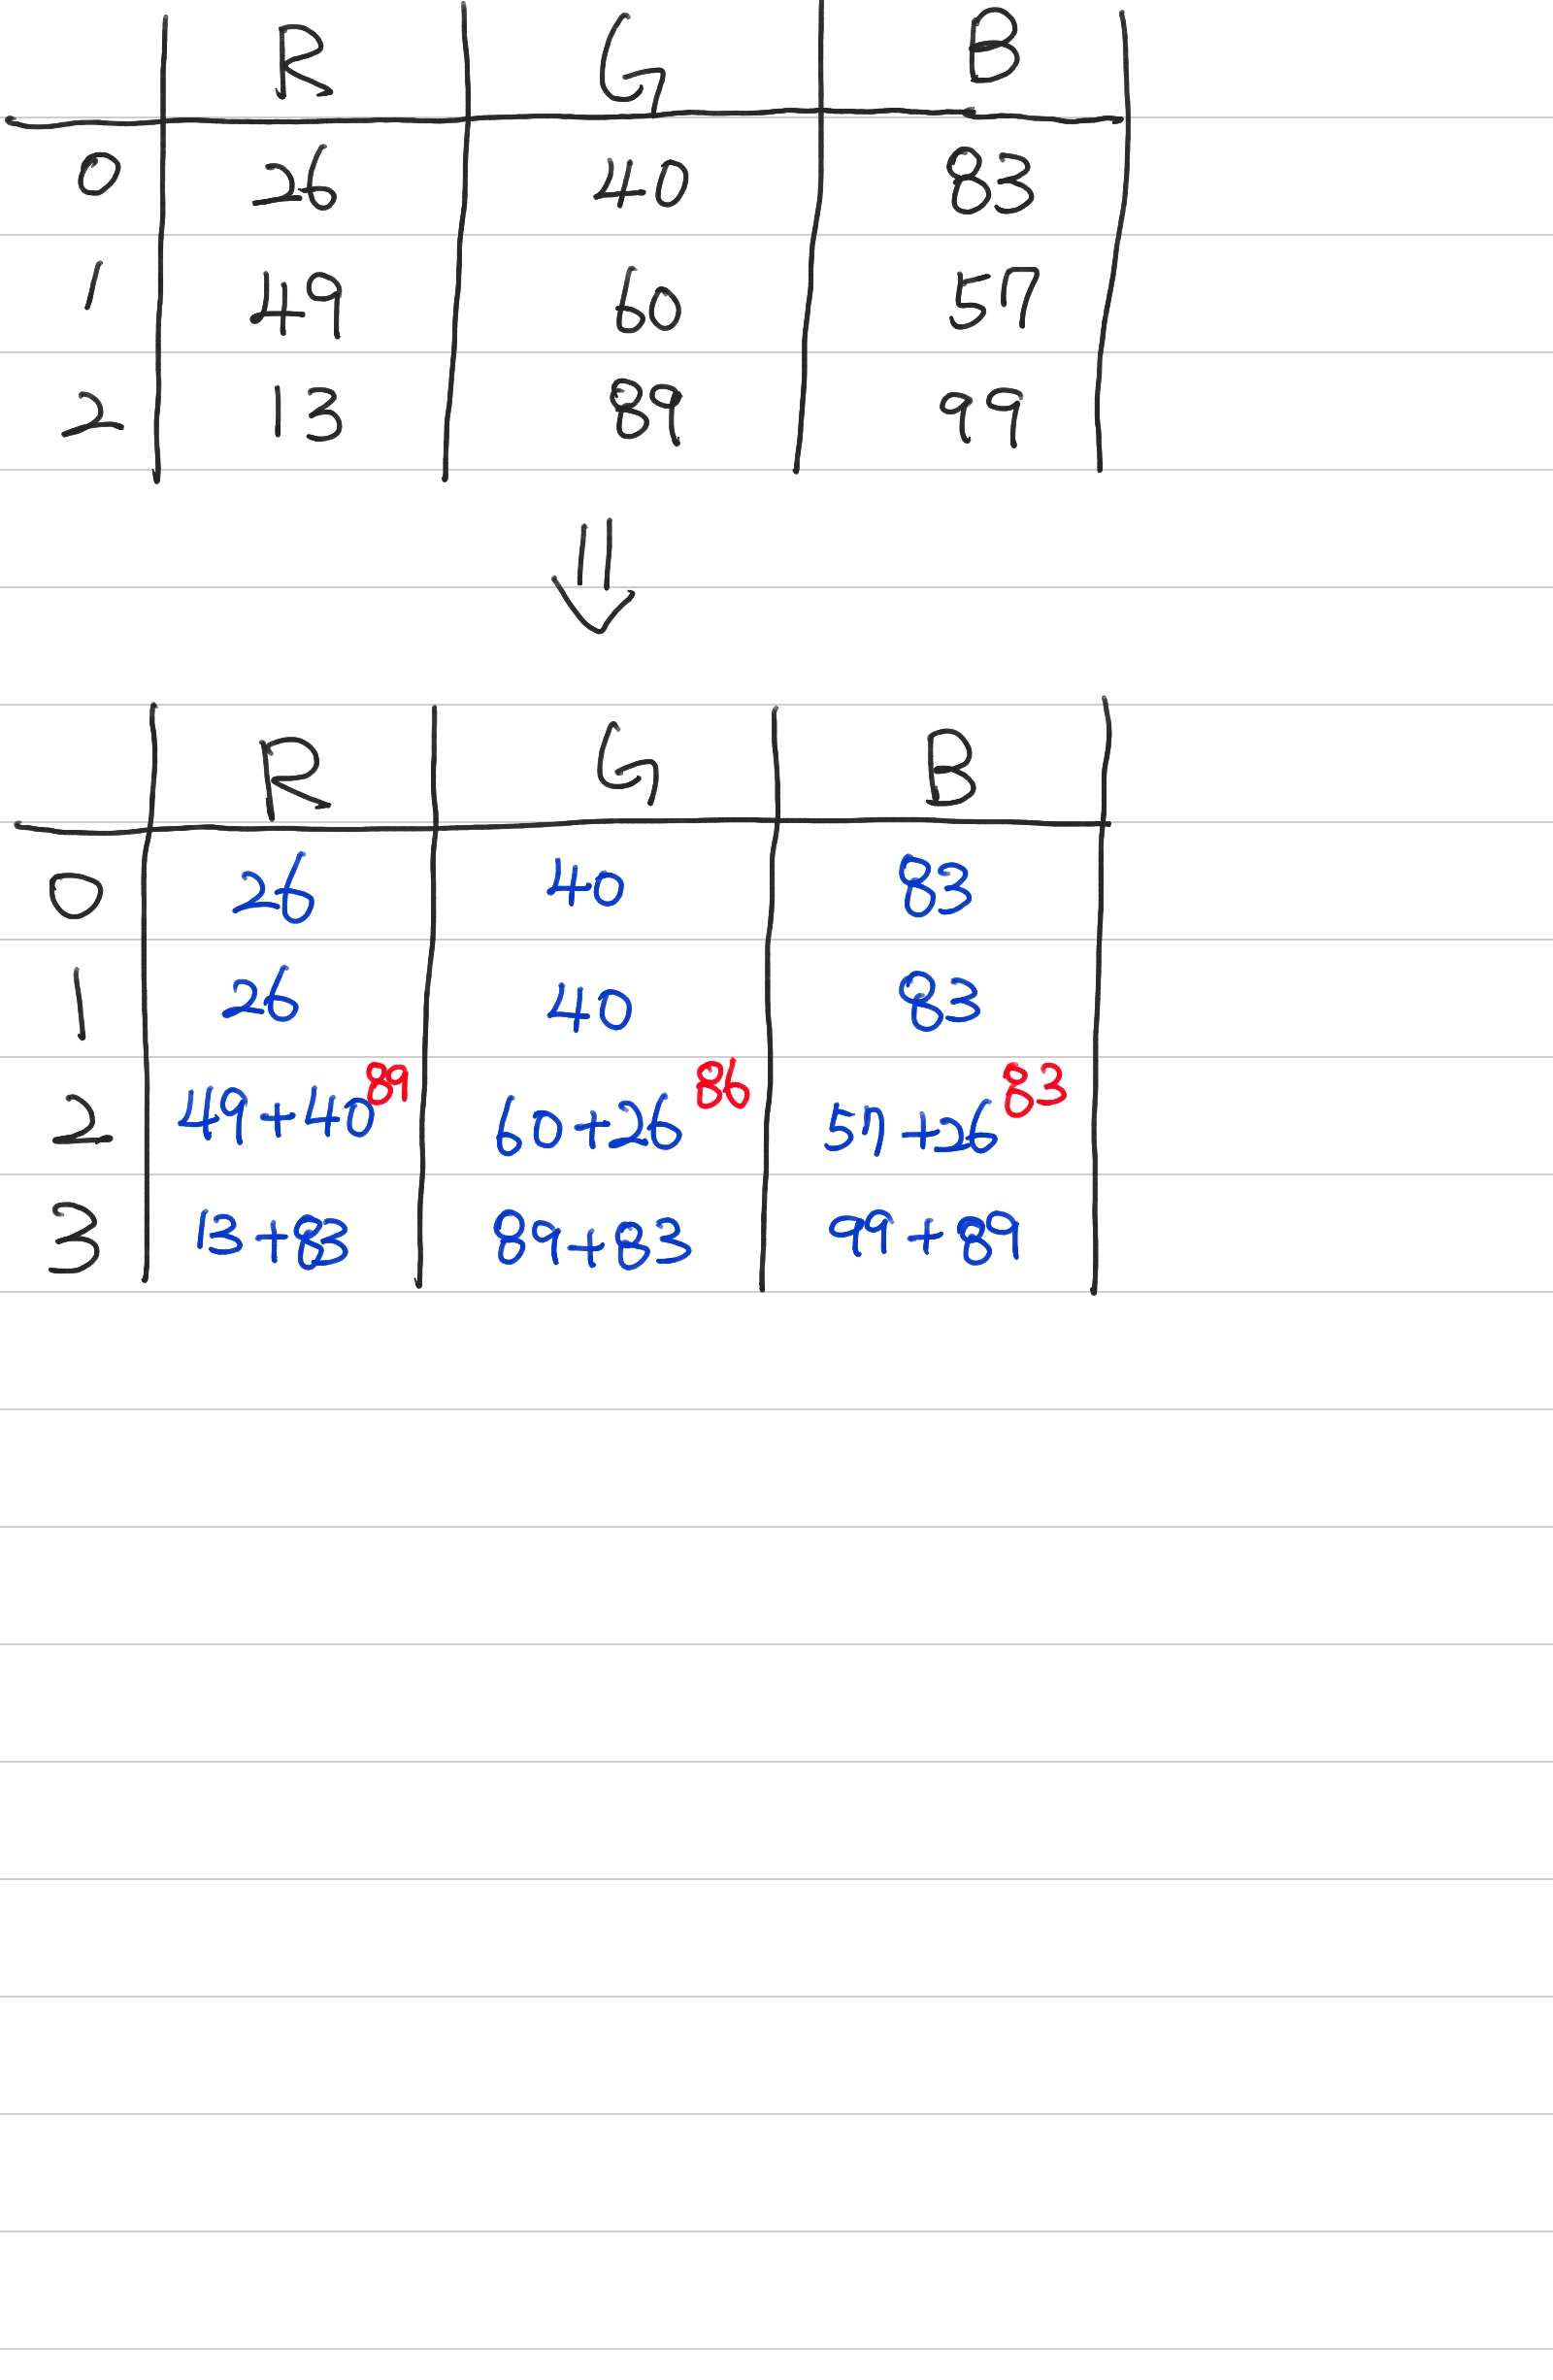 R G B
0 26 40 83
1 49 60 57
2 13 89 99
R G B
0 26 40 83
1 26 40 83
2 49+40 89 60+26 86 57+26 83
3 13+83 89+83 99+89